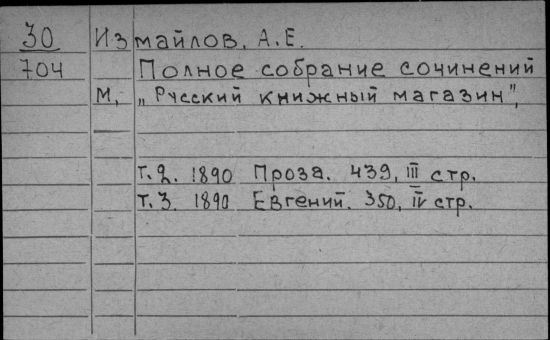 30 Измайлов, А.Е.
704 Полное собрание сочинений
М, „Русский книжный магазин",
т.2. 1890 Проза. 439, III стр.
т.3. 1890 Евгений. 350, IV стр.